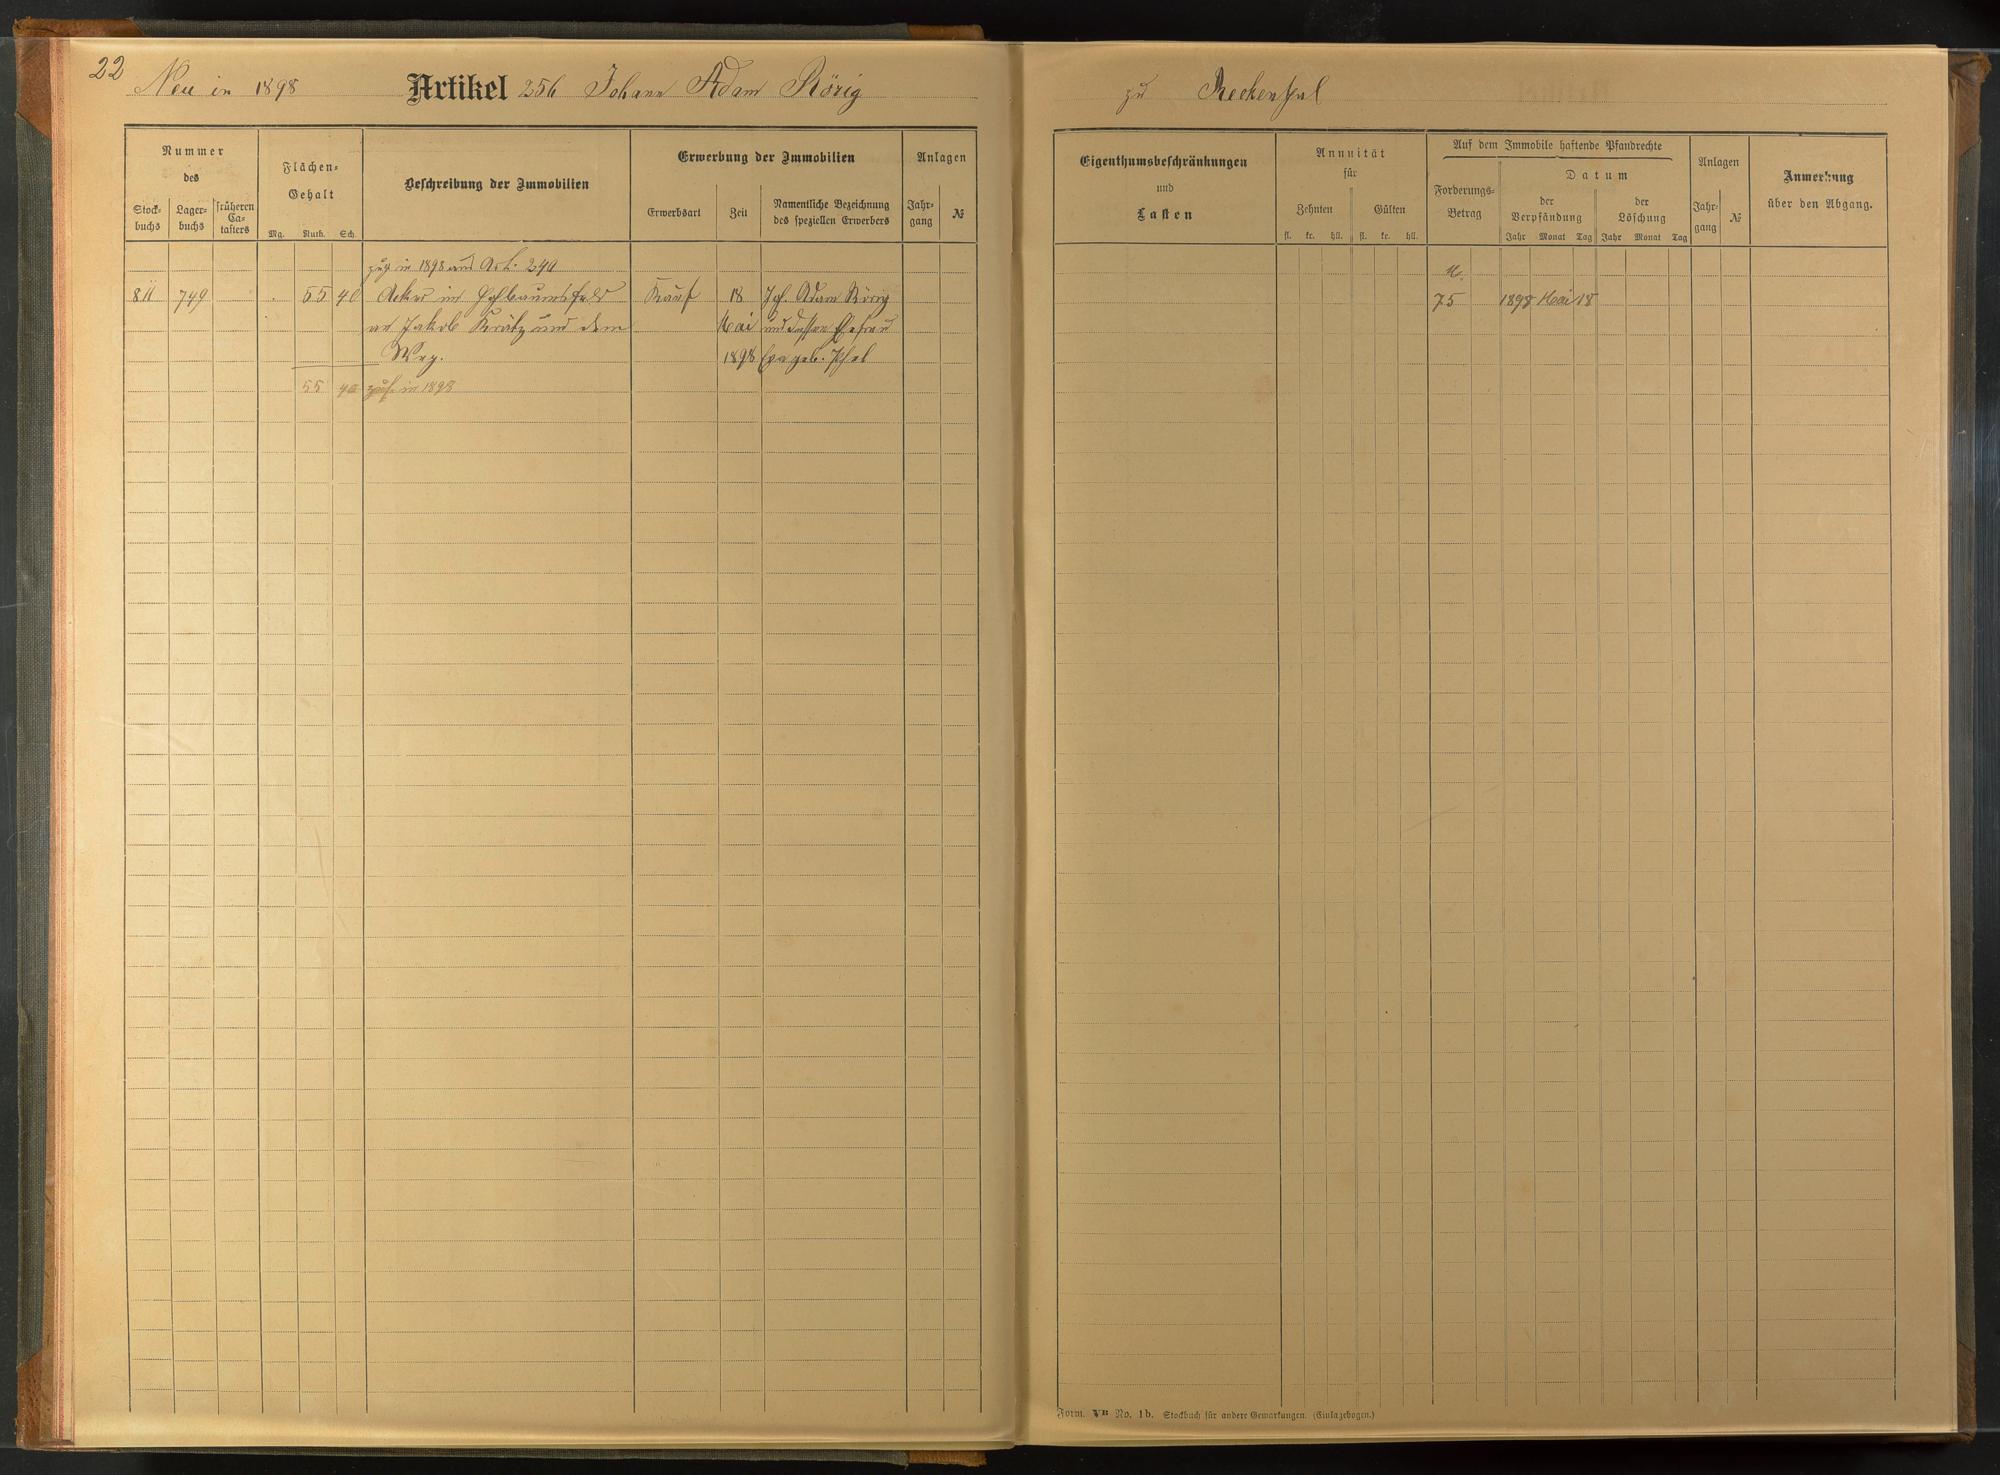 22
Neu in 1898 Artikel 256 Johann Adam Rörig
Nummer
des
Stock-
buchs
Lager-
buchs
früheren
Ca-
tasters
Flächen-
Gehalt
Mg. Ruth. Sch.
Beschreibung der Immobilien
Erwerbung der Immobilien
Erwerbsart
Zeit
Namentliche Bezeichnung
des speziellen Erwerbers
Anlagen
Jahr-
gang
№
zug. in 1898 aus Art. 240
811 749 55 40 Acker im
Kauf 18 Joh. Adam Rörig
an Jakob Krätz und dem Mai und dessen Ehefrau
Weg. 1898 Eva geb.
55 40 in 1898
zu
Eigenthumsbeschränkungen
und
Lasten
Annuität
für
Zehnten
fl. kr. hll.
Gülten
fl. kr. hll.
Auf dem Immobile haftende Pfandrechte
Forderungs-
Betrag
Datum
der
Verpfändung
Jahr Monat Tag
der
Löschung
Jahr Monat Tag
Anlagen
Jahr-
gang
№
Anmerkung
über den Abgang.
75 1898 Mai 18
Form. VB No. 1b. Stockbuch für andere Gemarkungen. (Einlagebogen.)